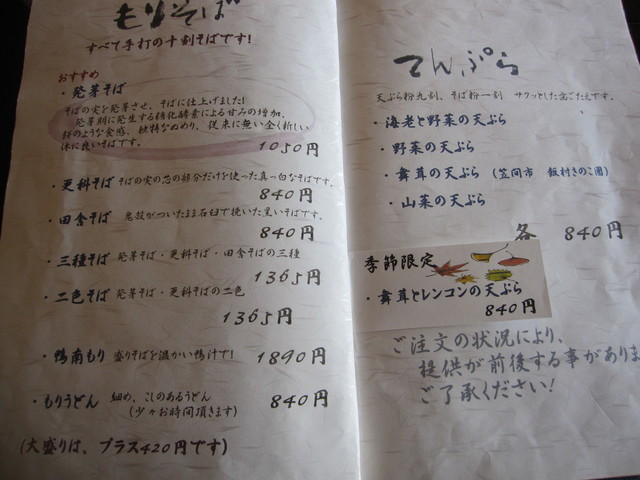 もりそば
すべて手打の十割そばです!
おすすめ
・発芽そば
そばの実を発芽させ、そばに仕上げました!
発芽期に発生する糖化酵素による甘みの増加、
餅のような食感、独特なぬめり、従来に無い全く新しい
体に良いそばです。
1050円
・更科そば そばの実の芯の部分だけを使った真っ白なそばです。
840円
・田舎そば 鬼殻がついたまま石臼で挽いた黒いそばです。
840円
・三種そば 発芽そば・更科そば・田舎そばの三種
1365円
・二色そば 発芽そば・更科そばの二色
1365円
・鴨南もり 盛りそばを温かい鴨汁で! 1890円
・もりうどん 細め、こしのあるうどん 840円
(少々お時間頂きます)
(大盛りは、プラス420円です)
てんぷら
天ぷら粉九割、そば粉一割 サクッとした歯ごたえです。
・海老と野菜の天ぷら
・野菜の天ぷら
・舞茸の天ぷら (笠間市 飯村きのこ園)
・山菜の天ぷら
各 840円
季節限定
・舞茸とレンコンの天ぷら
840円
ご注文の状況により、
提供が前後する事がありま
ご了承ください!